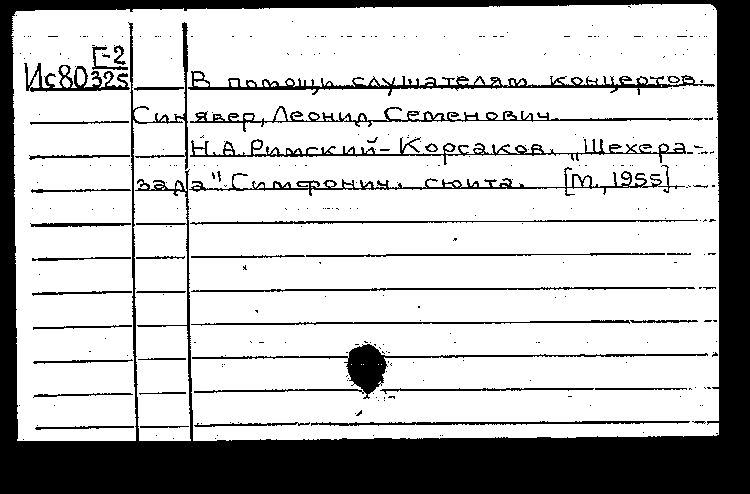 Г-2
Ис80 325
В помощи слушателям концертов.
Синявер, Леонид Семенович
Н.А. Римский-Корсаков. „Шехера-
зада" Симфонич. сюита. [М., 1955].